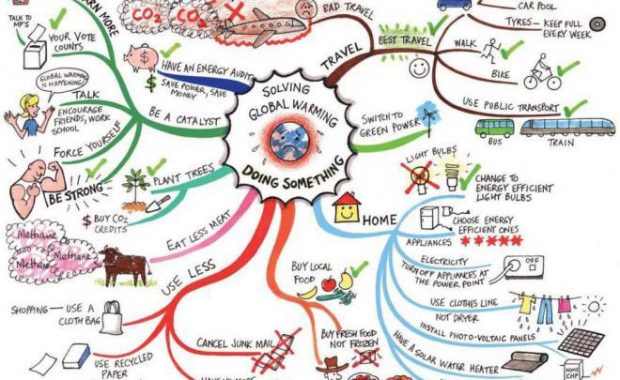 SOLVING
GLOBAL WARMING
DOING SOMETHING
CO2
CO2
BAD TRAVEL
TRAVEL
BEST TRAVEL
CAR POOL
TYRES - KEEP FULL
EVERY WEEK
WALK
BIKE
USE PUBLIC TRANSPORT
BUS
TRAIN
SWITCH TO
GREEN POWER
HOME
LIGHT BULBS
CHANGE TO
ENERGY EFFICIENT
LIGHT BULBS
APPLIANCES
CHOOSE ENERGY
EFFICIENT ONES
ELECTRICITY
TURN OFF APPLIANCES AT
THE POWER POINT
OFF
USE CLOTHES LINE
NOT DRYER
INSTALL PHOTO-VOLTAIC PANELS
HAVE A SOLAR WATER HEATER
HOME
CHP
BUY LOCAL
FOOD
BUY FRESH FOOD
NOT FROZEN
USE LESS
CANCEL JUNK MAIL
SHOPPING — USE A
CLOTH BAG
USE RECYCLED
PAPER
EAT LESS MEAT
Methane
Methane
Methane
PLANT TREES
$ BUY CO2
CREDITS
BE A CATALYST
LEARN MORE
TALK TO
MP'S
YOUR VOTE
COUNTS
GLOBAL WARMING
IS HAPPENING!
TALK
ENCOURAGE
FRIENDS, WORK
SCHOOL
FORCE YOURSELF
BE STRONG
HAVE AN ENERGY AUDIT
$ SAVE POWER, SAVE
MONEY